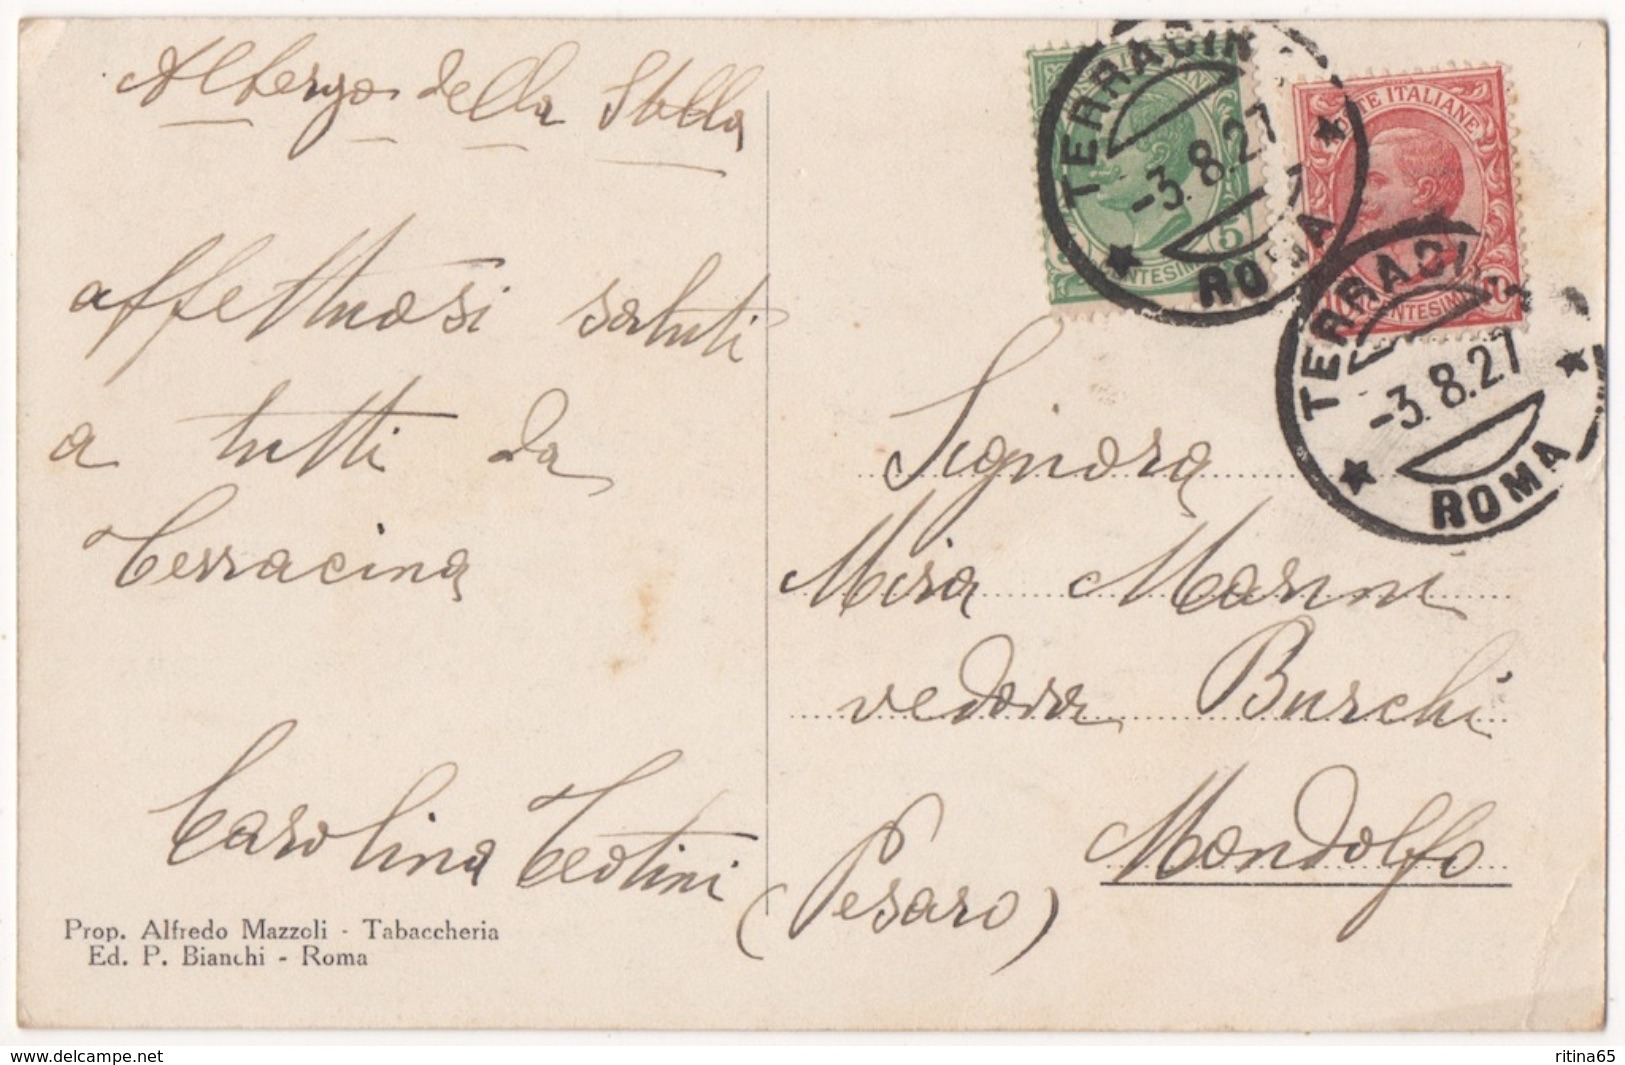 Albergo della Stella
affettuosi saluti
a tutti da
Terracina
Carolina Teotini
Prop. Alfredo Mazzoli - Tabaccheria
Ed. P. Bianchi - Roma
POSTE ITALIANE
5
CENTESIMI
POSTE ITALIANE
10 CENTESIMI 10
TERRACINA
-3.8.27
ROMA
TERRACINA
-3.8.27
ROMA
Signora
Mira Marini
vedova Burchi
Mondolfo
(Pesaro)
delcampe.net
ritina65